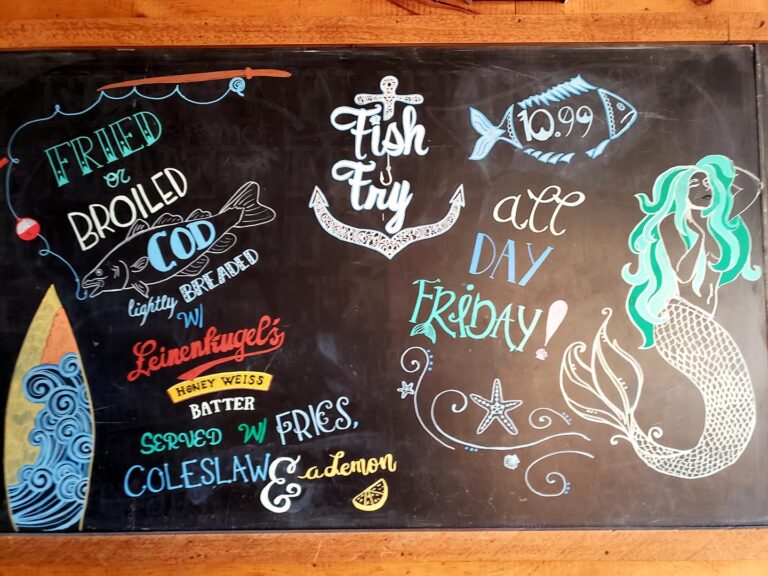 FRIED
or
BROILED
COD
lightly BREADED
W/
Leinenkugel's
HONEY WEISS
BATTER
SERVED W/ FRIES,
COLESLAW & a Lemon
Fish
Fry
10.99
all
DAY
FRIDAY!